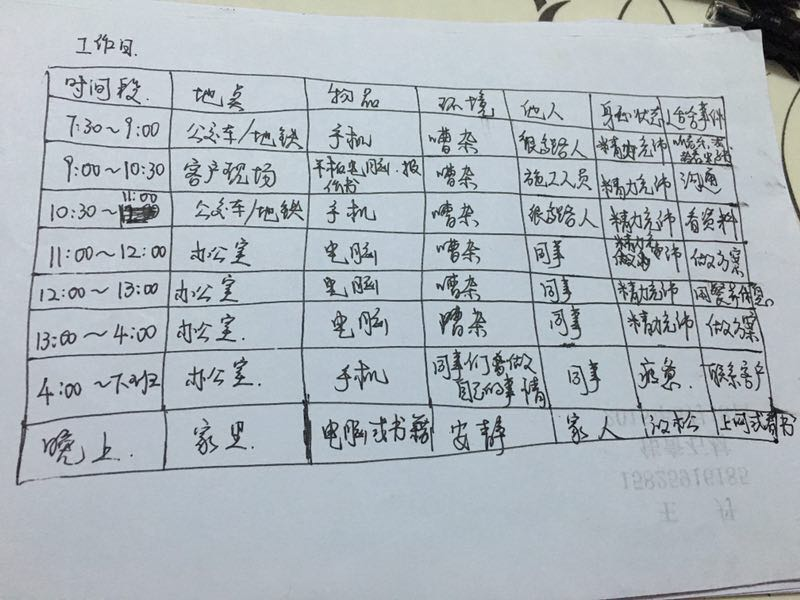 工作日.
时间段. 地点 物品 环境 他人 身心状态 适合事件
7:30~9:00 公交车/地铁 手机 嘈杂 很多路人 精力充沛
9:00~10:30 客户现场 平板电脑、报价书 嘈杂 施工人员 精力充沛 沟通
10:30~11:00 公交车/地铁 手机 嘈杂 很多路人 精力充沛 看资料
11:00~12:00 办公室 电脑 嘈杂 同事 精力充沛 做方案
12:00~13:00 办公室 电脑 嘈杂 同事 精力充沛
13:00~4:00 办公室. 电脑 嘈杂 同事 精力充沛 做方案
4:00~下班 办公室. 手机 同事们要做自己的事情 同事 疲惫. 联系客户
晚上 家里 电脑或书籍 安静 家人 放松 上网或看书
15825916185